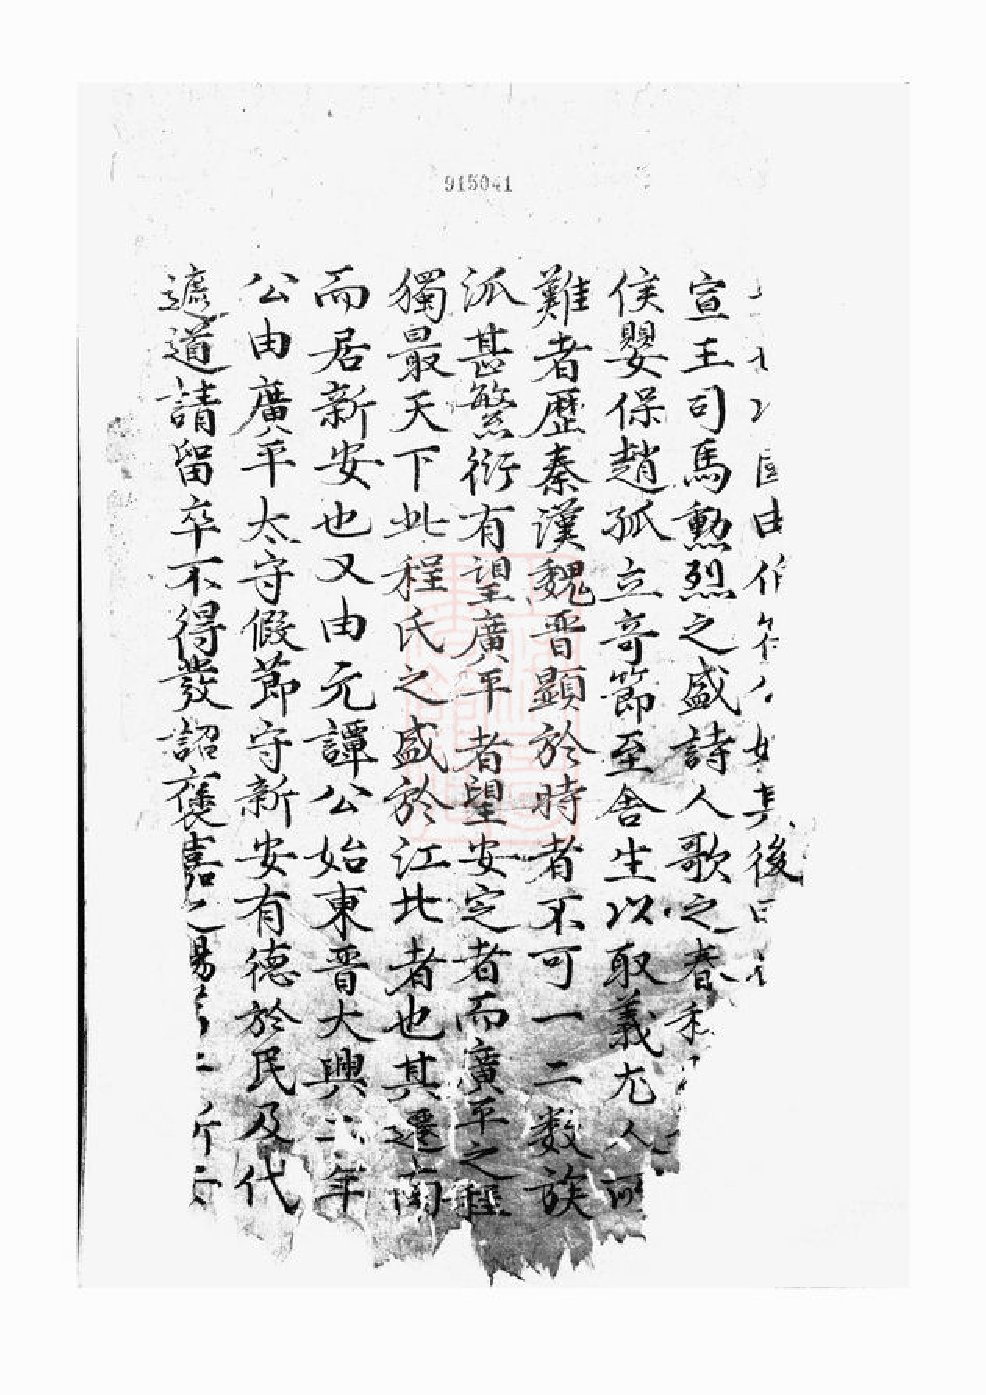 915041
由後
宣王司馬勲烈之盛詩人歌之春
侯嬰保趙孤立竒節至舎生以取義尤人
難者歴秦漢魏晋顯於時者不可一二数族
派甚繁衍有望廣平者望安定者而廣平之程
獨最天下此程氏之盛於江北者也其遷南
而居新安也又由元譚公始東晋大興年
公由廣平太守假節守新安有德於民及代
遮道請留卒不得發詔褒嘉之